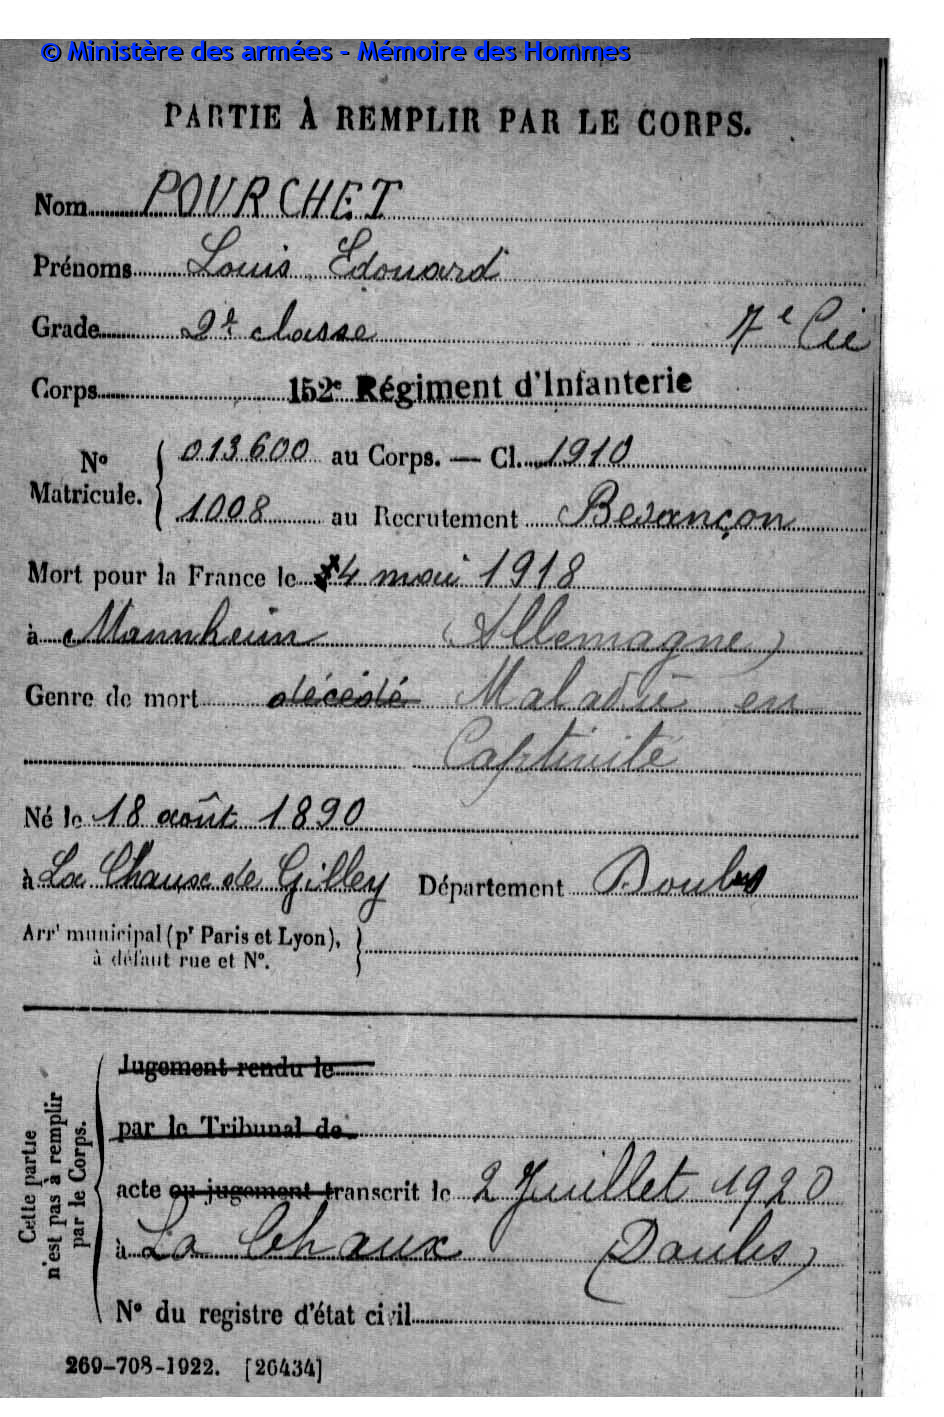 © Ministère des armées - Mémoire des Hommes
PARTIE À REMPLIR PAR LE CORPS.
Nom POURCHET
Prénoms Louis Edouard
Grade 2e classe 7e Cie
Corps 152e Régiment d'Infanterie
No Matricule. { 013600 au Corps. — Cl. 1910
1008 au Recrutement Besançon
Mort pour la France le 4 mai 1918
à Mannheim (Allemagne)
Genre de mort décédé Maladie en
Captivité
Né le 18 août 1890
à La Chaux de Gilley Département Doubs
Arrt municipal (pr Paris et Lyon), }
à défaut rue et No.
Cette partie n'est pas à remplir par le Corps.
Jugement rendu le
par le Tribunal de
acte ou jugement transcrit le 2 Juillet 1920
à La Chaux (Doubs)
No du registre d'état civil
269-708-1922. [26434]